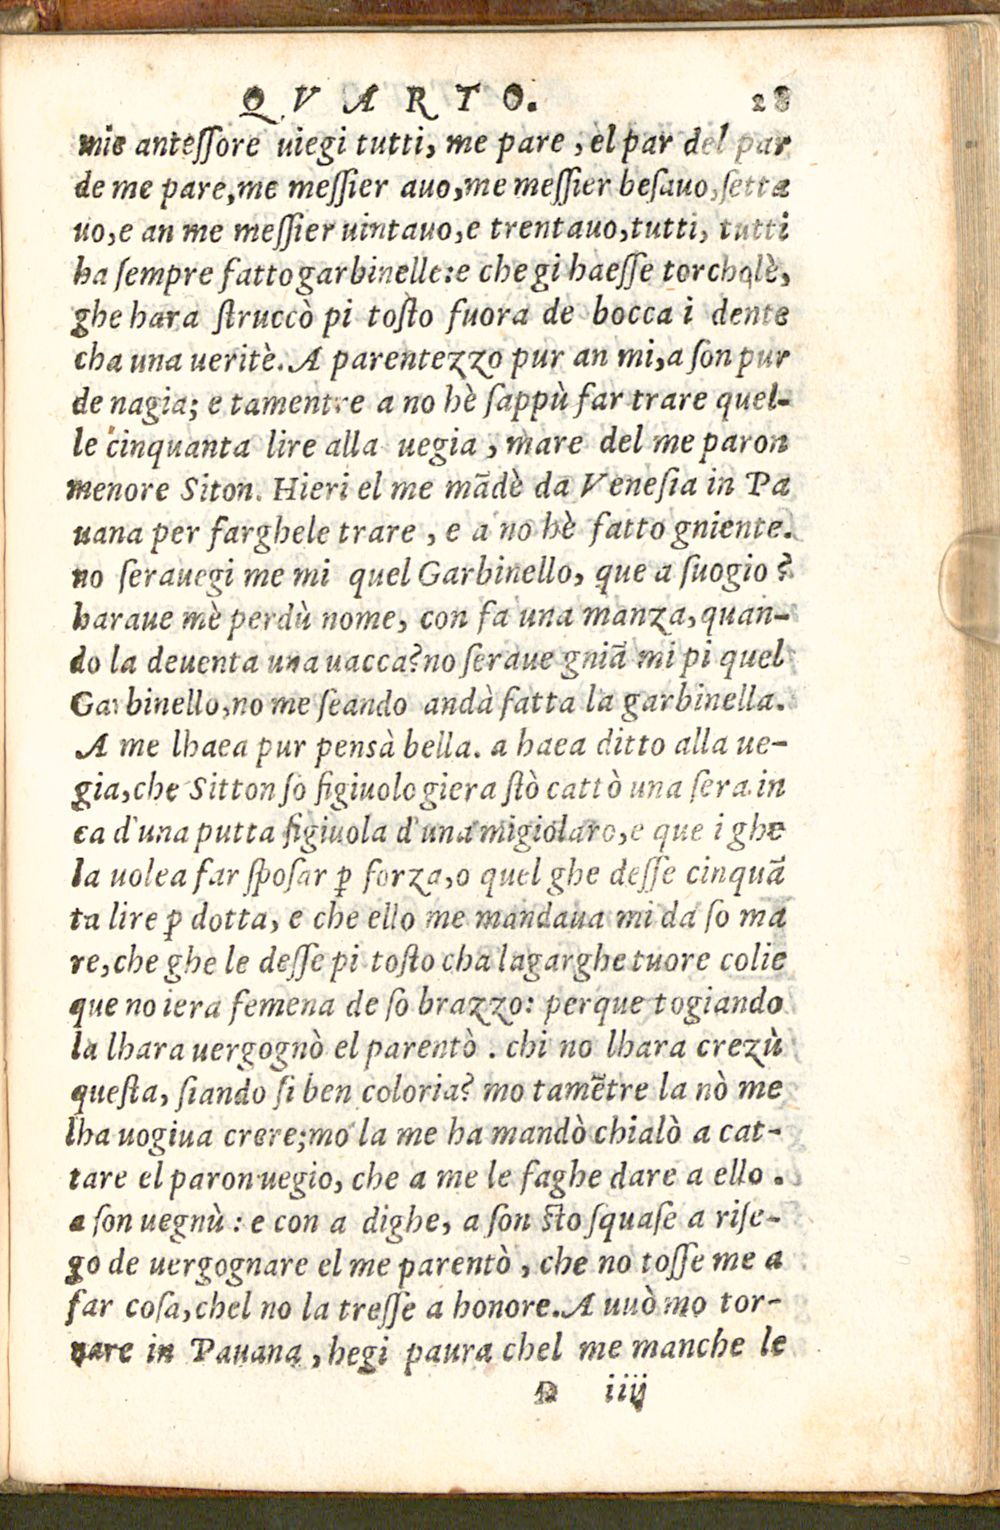 QVARTO. 28
mie antessore uiegi tutti, me pare, el par del par
de me pare, me messier auo, me messier besauo, setta
uo, e an me messier uintauo, e trentauo, tutti, tutti
ha sempre fatto garbinelle: e che gi haesse torcholè,
ghe hara struccò pi tosto fuora de bocca i dente
cha una ueritè. A parentezzo pur an mi, a son pur
de nagia; e tamentre a no hè sappù far trare quel-
le cinquanta lire alla uegia, mare del me paron
menore Siton. Hieri el me mãdè da Venesia in Pa
uana per farghele trare, e a no hè fatto gniente.
no serauegi me mi quel Garbinello, que a suogio?
haraue mè perdù nome, con fa una manza, quan-
do la deuenta una uacca? no seraue gniã mi pi quel
Garbinello, no me seando andà fatta la garbinella.
A me lhaea pur pensà bella. a haea ditto alla ue-
gia, che Sitton so figiuolo giera stò cattò una sera in
ca d'una putta figiuola d'una migiolaro, e que i ghe
la uolea far sposar ꝑ forza, o quel ghe desse cinquã
ta lire ꝑ dotta, e che ello me mandaua mi da so ma
re, che ghe le desse pi tosto cha lagarghe tuore colie
que no iera femena de so brazzo: perque togiando
la lhara uergognò el parentò. chi no lhara crezù
questa, siando si ben coloria? mo tamẽtre la nò me
lha uogiua crere; mo la me ha mandò chialò a cat-
tare el paron uegio, che a me le faghe dare a ello.
a son uegnù: e con a dighe, a son sto squase a rise-
go de uergognare el me parentò, che no tosse me a
far cosa, chel no la tresse a honore. A uuò mo tor-
nare in Pauana, hegi paura chel me manche le
D iiij